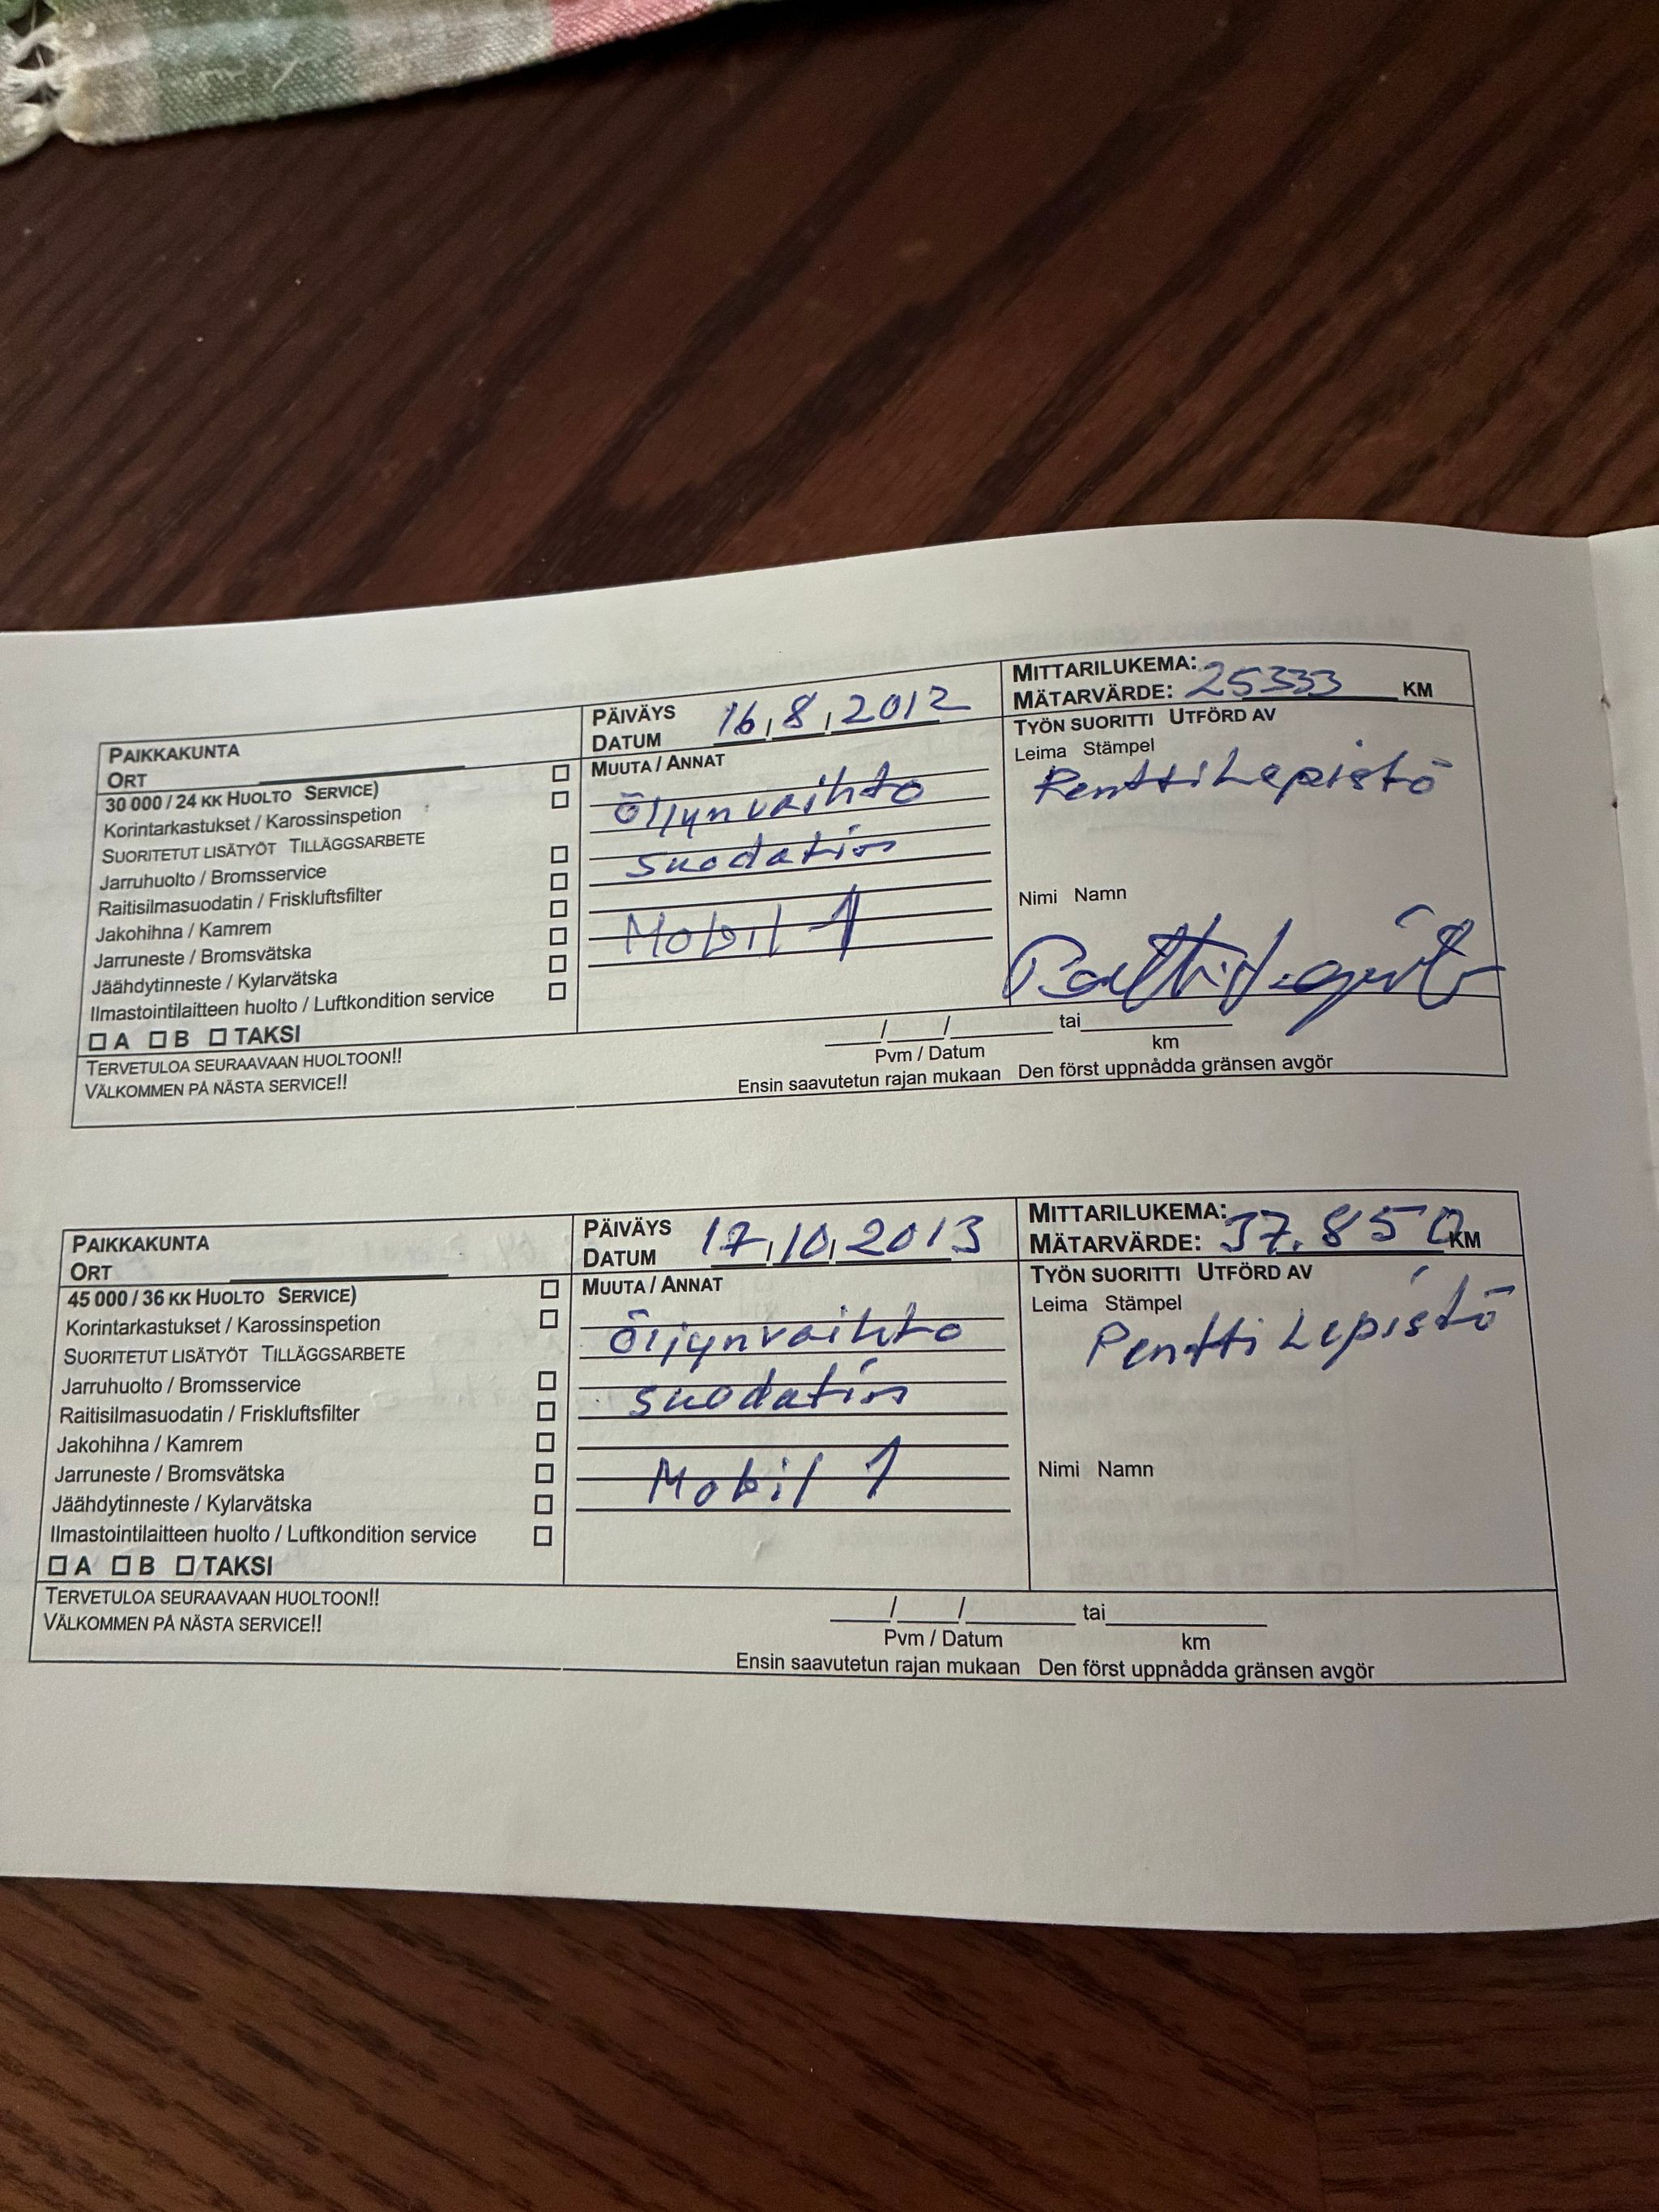 PÄIVÄYS
DATUM 16,8,2012
MITTARILUKEMA:
MÄTARVÄRDE: 25333 KM
PAIKKAKUNTA
ORT
30 000 / 24 KK HUOLTO SERVICE)
Korintarkastukset / Karossinspetion
SUORITETUT LISÄTYÖT TILLÄGGSARBETE
Jarruhuolto / Bromsservice
Raitisilmasuodatin / Friskluftsfilter
Jakohihna / Kamrem
Jarruneste / Bromsvätska
Jäähdytinneste / Kylarvätska
Ilmastointilaitteen huolto / Luftkondition service
A B TAKSI
MUUTA / ANNAT
Öljynvaihto
suodatin
Mobil 1
TYÖN SUORITTI UTFÖRD AV
Leima Stämpel
Pentti Lepistö
Nimi Namn
TERVETULOA SEURAAVAAN HUOLTOON!!
VÄLKOMMEN PÅ NÄSTA SERVICE!!
/ / tai
Pvm / Datum km
Ensin saavutetun rajan mukaan Den först uppnådda gränsen avgör
PÄIVÄYS
DATUM 17,10,2013
MITTARILUKEMA:
MÄTARVÄRDE: 37.850 KM
PAIKKAKUNTA
ORT
45 000 / 36 KK HUOLTO SERVICE)
Korintarkastukset / Karossinspetion
SUORITETUT LISÄTYÖT TILLÄGGSARBETE
Jarruhuolto / Bromsservice
Raitisilmasuodatin / Friskluftsfilter
Jakohihna / Kamrem
Jarruneste / Bromsvätska
Jäähdytinneste / Kylarvätska
Ilmastointilaitteen huolto / Luftkondition service
A B TAKSI
MUUTA / ANNAT
Öljynvaihto
suodatin
Mobil 1
TYÖN SUORITTI UTFÖRD AV
Leima Stämpel
Pentti Lepistö
Nimi Namn
TERVETULOA SEURAAVAAN HUOLTOON!!
VÄLKOMMEN PÅ NÄSTA SERVICE!!
/ / tai
Pvm / Datum km
Ensin saavutetun rajan mukaan Den först uppnådda gränsen avgör